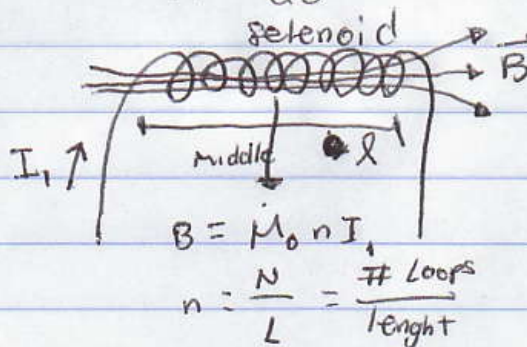 selenoid
B
I₁
Middle
l
B = M₀ n I₁
n = N/L = # Loops/lenght